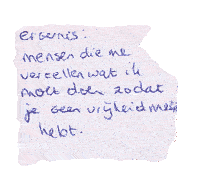 ergernis:
mensen die me
vertellen wat ik
moet doen zodat
je geen vrijheid meer
hebt.